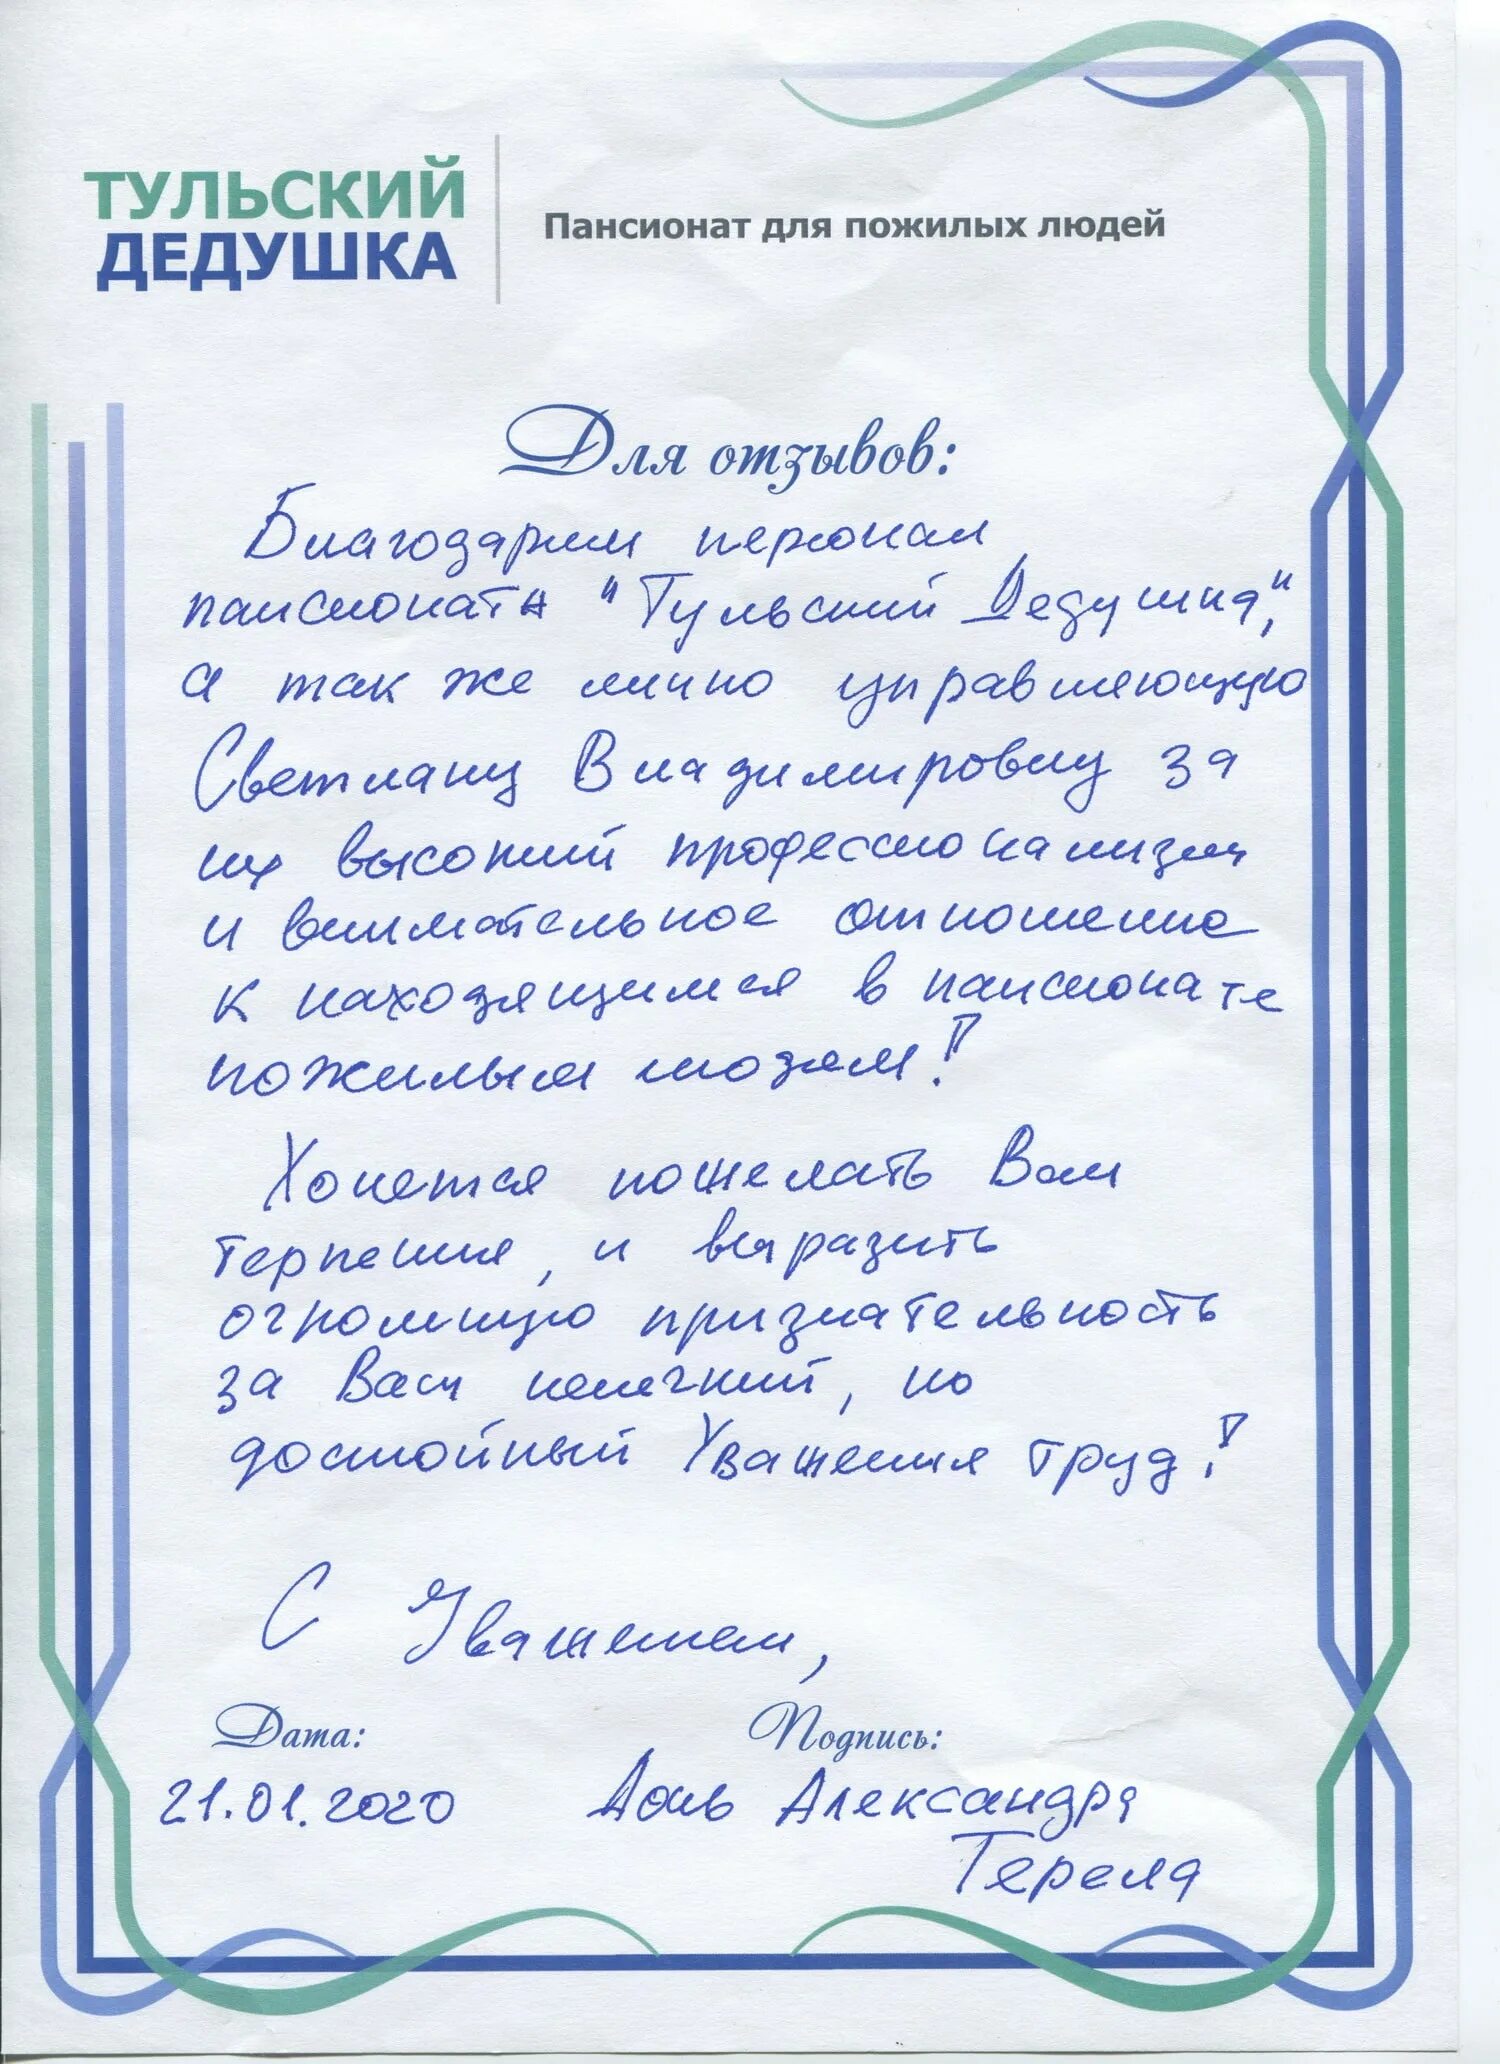 ТУЛЬСКИЙ
ДЕДУШКА
Пансионат для пожилых людей
Для отзывов:
Благодарим персонал
пансионата "Тульский Дедушка",
а так же лично управляющую
Светлану Владимировну за
их высокий профессионализм
и внимательное отношение
к находящимся в пансионате
пожилым людям!
Хочется пожелать Вам
терпения, и выразить
огромную признательность
за Ваш нелегкий, но
достойный Уважения труд!
С Уважением,
Дата:
Подпись:
21.01.2020
Дочь Александра
Тереля